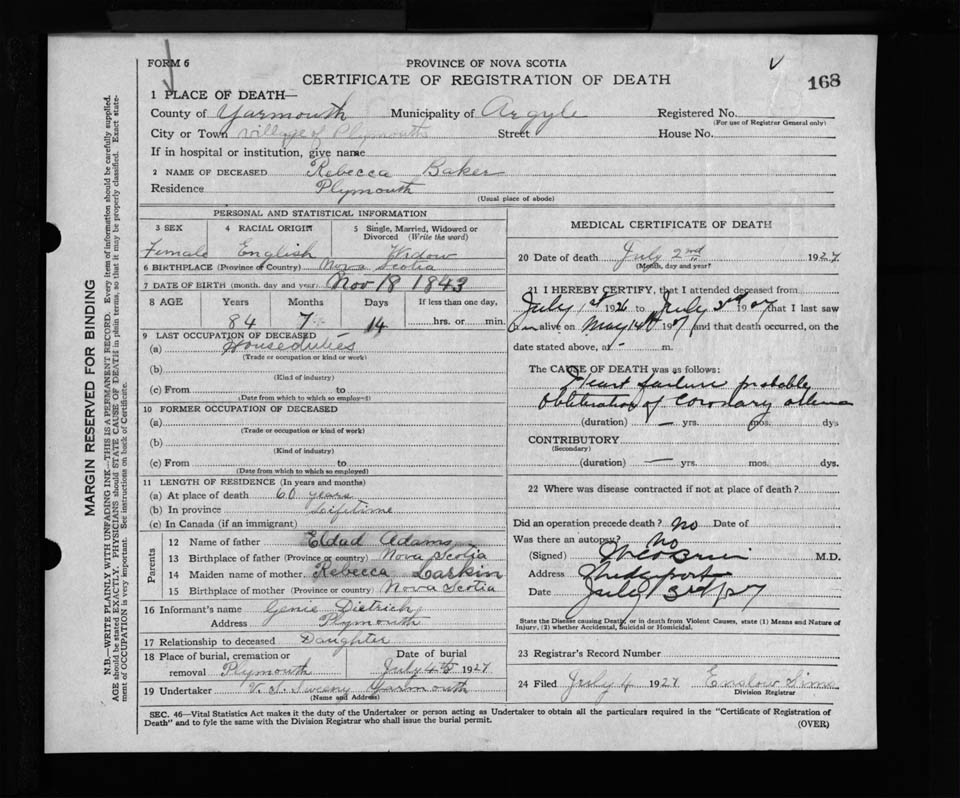 FORM 6
PROVINCE OF NOVA SCOTIA
CERTIFICATE OF REGISTRATION OF DEATH
168
1 PLACE OF DEATH—
County of Yarmouth Municipality of Argyle Registered No.
(For use of Registrar General only)
City or Town Village of Plymouth Street House No.
If in hospital or institution, give name
2 NAME OF DECEASED Rebecca Baker
Residence Plymouth
(Usual place of abode)
PERSONAL AND STATISTICAL INFORMATION
3 SEX 4 RACIAL ORIGIN 5 Single, Married, Widowed or Divorced (Write the word)
Female English Widow
6 BIRTHPLACE (Province or Country) Nova Scotia
7 DATE OF BIRTH (month, day and year) Nov 18 1843
8 AGE Years Months Days If less than one day,
84 7 14 hrs. or min.
9 LAST OCCUPATION OF DECEASED
(a) Houseduties
(Trade or occupation or kind or work)
(b)
(Kind of industry)
(c) From to
(Date from which to which so employed)
10 FORMER OCCUPATION OF DECEASED
(a)
(Trade or occupation or kind of work)
(b)
(Kind of industry)
(c) From to
(Date from which to which so employed)
11 LENGTH OF RESIDENCE (In years and months)
(a) At place of death 60 years
(b) In province Lifetime
(c) In Canada (if an immigrant)
Parents
12 Name of father Eldad Adams
13 Birthplace of father (Province or country) Nova Scotia
14 Maiden name of mother Rebecca Larkin
15 Birthplace of mother (Province or country) Nova Scotia
16 Informant's name Genie Dietrich
Address Plymouth
17 Relationship to deceased Daughter
18 Place of burial, cremation or removal Plymouth Date of burial July 4th 1927
19 Undertaker V. S. Sweeny Yarmouth
(Name and Address)
MEDICAL CERTIFICATE OF DEATH
20 Date of death July 2nd 1927
(Month, day and year)
21 I HEREBY CERTIFY, that I attended deceased from
July 1st 1926 to July 2nd 1927 that I last saw
alive on May 14th 1927 and that death occurred, on the
date stated above, at - m.
The CAUSE OF DEATH was as follows:
Heart failure probable
obliteration of coronary
(duration) — yrs. mos. dys
CONTRIBUTORY
(Secondary)
(duration) — yrs. mos. dys.
22 Where was disease contracted if not at place of death?
Did an operation precede death? No Date of
Was there an autopsy? No
(Signed) M.D.
Address
Date July 3rd/27
State the Disease causing Death, or in death from Violent Causes, state (1) Means and Nature of
Injury, (2) whether Accidental, Suicidal or Homicidal.
23 Registrar's Record Number
24 Filed July 4 1927 Enslow Sims
Division Registrar
SEC. 46—Vital Statistics Act makes it the duty of the Undertaker or person acting as Undertaker to obtain all the particulars required in the "Certificate of Registration of
Death" and to fyle the same with the Division Registrar who shall issue the burial permit.
(OVER)
MARGIN RESERVED FOR BINDING
N.B.—WRITE PLAINLY WITH UNFADING INK—THIS IS A PERMANENT RECORD. Every item of information should be carefully supplied.
AGE should be stated EXACTLY. PHYSICIANS should STATE CAUSE OF DEATH in plain terms, so that it may be properly classified. Exact state-
ment of OCCUPATION is very important. See instructions on back of Certificate.